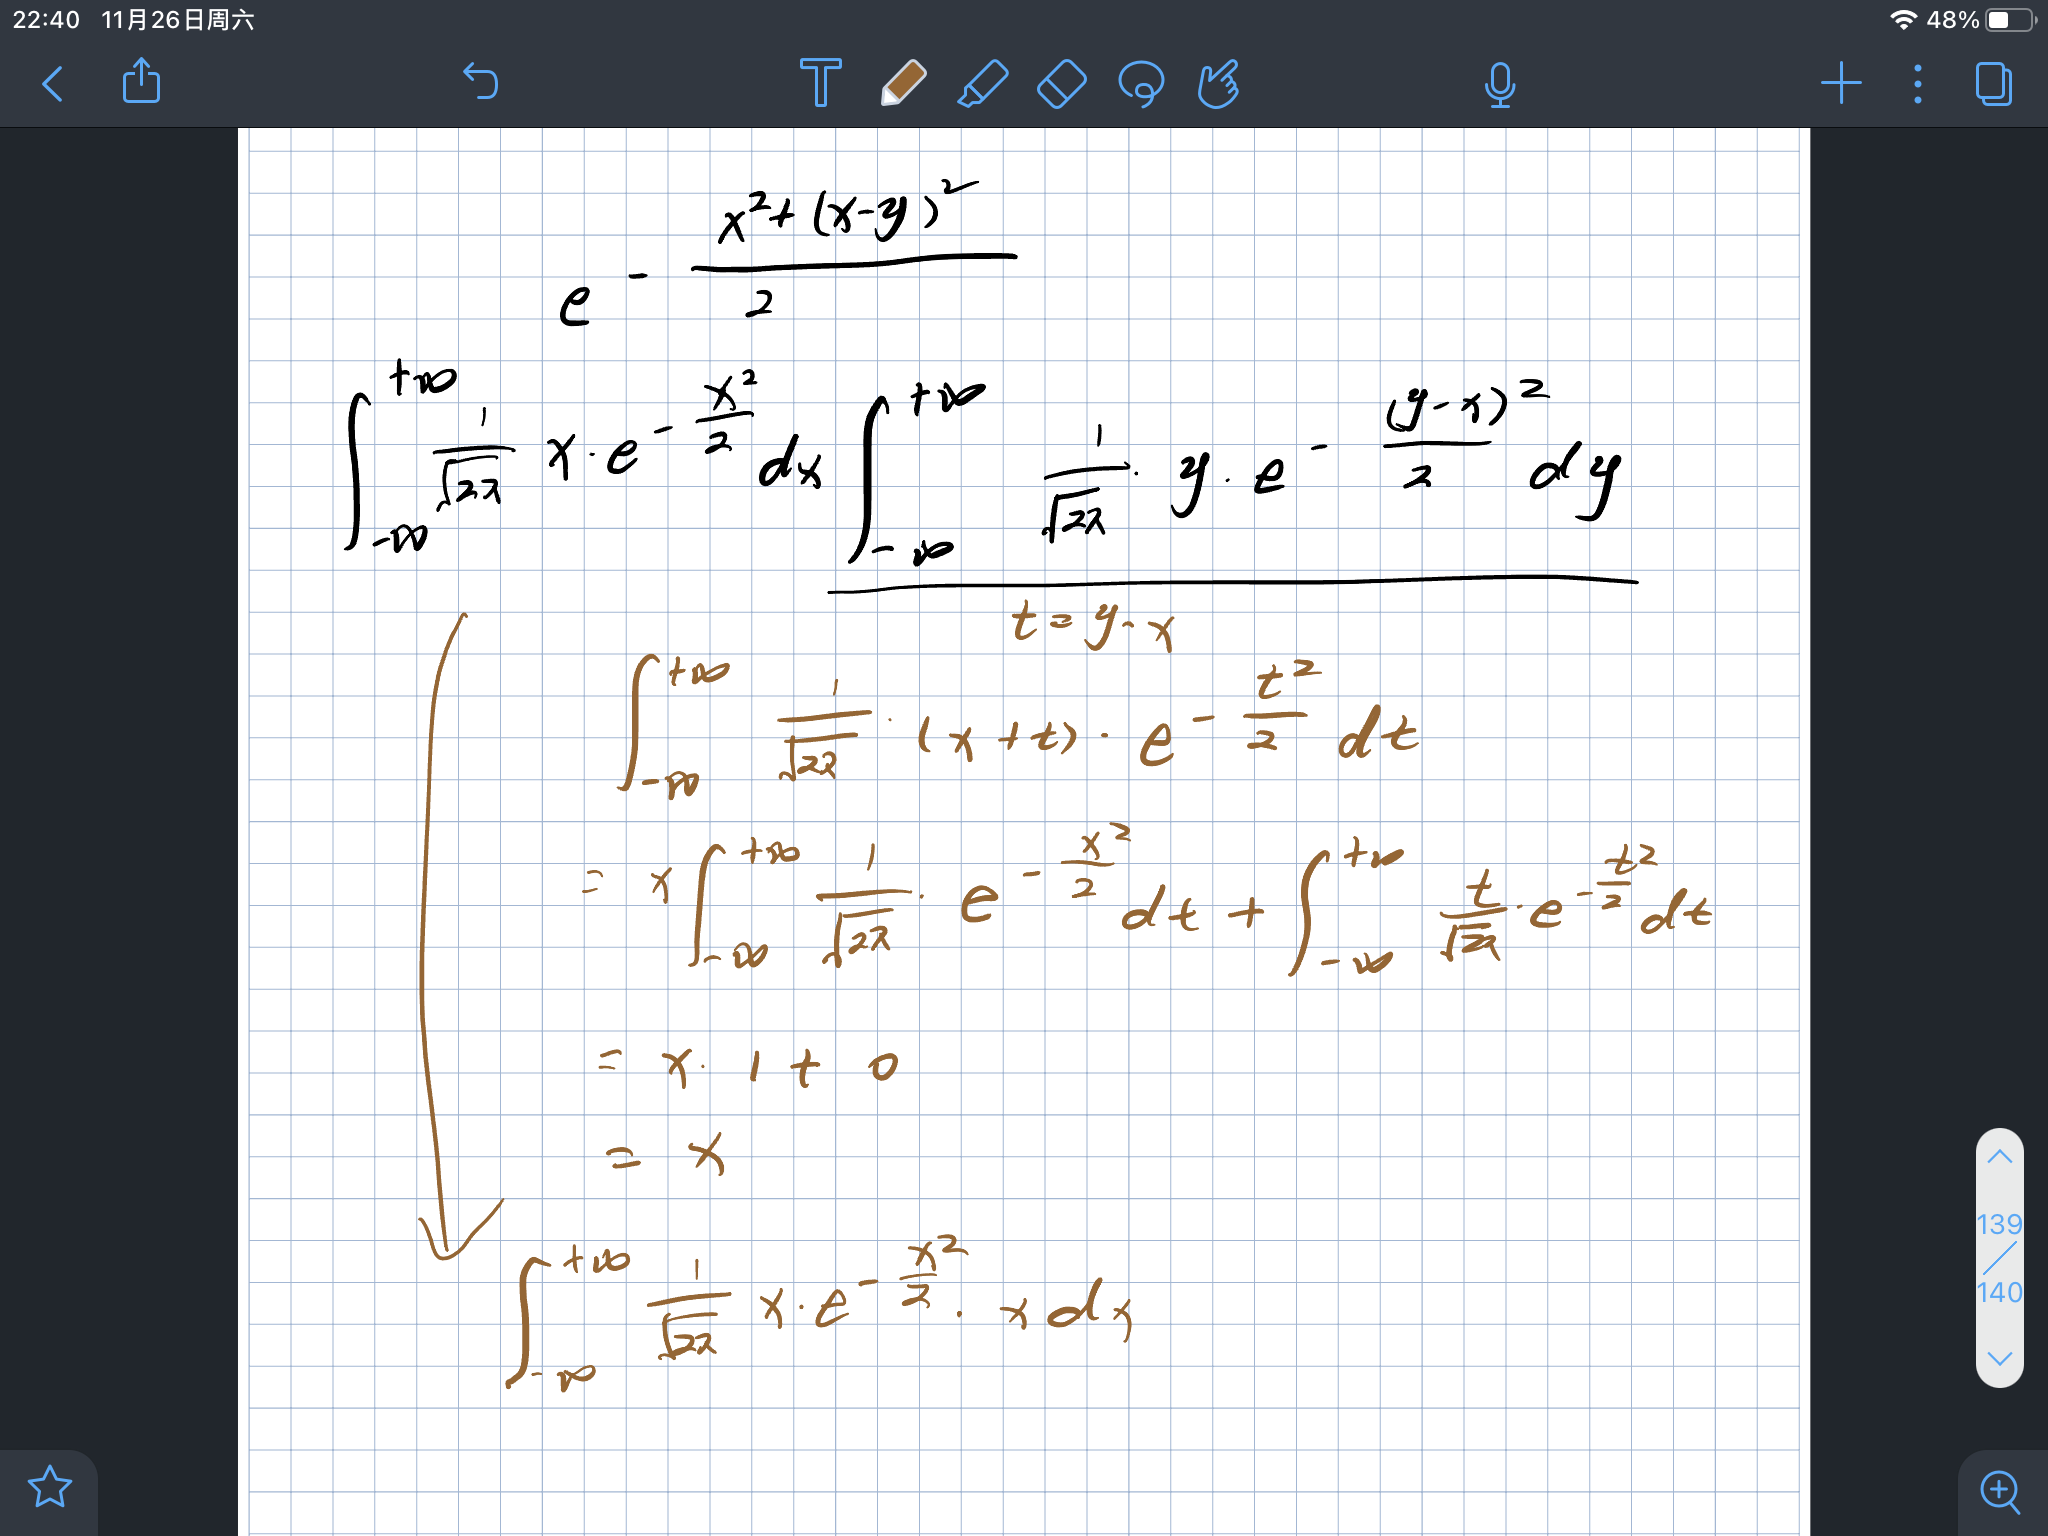 22:40 11月26日周六 48%
e^{-\frac{x^2+(x-y)^2}{2}}
\int_{-\infty}^{+\infty} \frac{1}{\sqrt{2\pi}} x \cdot e^{-\frac{x^2}{2}} dx \int_{-\infty}^{+\infty} \frac{1}{\sqrt{2\pi}} \cdot y \cdot e^{-\frac{(y-x)^2}{2}} dy
t = y - x
\int_{-\infty}^{+\infty} \frac{1}{\sqrt{2\pi}} \cdot (x+t) \cdot e^{-\frac{t^2}{2}} dt
= x \int_{-\infty}^{+\infty} \frac{1}{\sqrt{2\pi}} \cdot e^{-\frac{x^2}{2}} dt + \int_{-\infty}^{+\infty} \frac{t}{\sqrt{2\pi}} \cdot e^{-\frac{t^2}{2}} dt
= x \cdot 1 + 0
= x
\int_{-\infty}^{+\infty} \frac{1}{\sqrt{2\pi}} x \cdot e^{-\frac{x^2}{2}} \cdot x dx
139
/
140